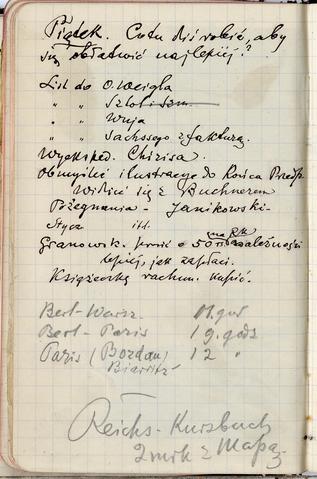 Piątek. Co tu dziś robić, aby
się obłatwić najlepiej?
List do O. Weigla
" " Szlol. Szm.
" " Wuja
" " Sachssego z fakturą.
Wyeksped. Chirisa.
Obmyślić ilustracje do Końca Przedp.
Widzieć się z Buchnerem
Pożegnania - Janikowski-
Stycz itd.
Granowsk. prosić o 50 należności
lepiej, jak zapłaci.
Książeczkę rachun. kupić.
Berl-Warsz. 11. god
Berl-Paris 19. godz
Paris (Bordau) 12 "
Biarritz
Reichs-Kursbuch
2 mrk z Mapą